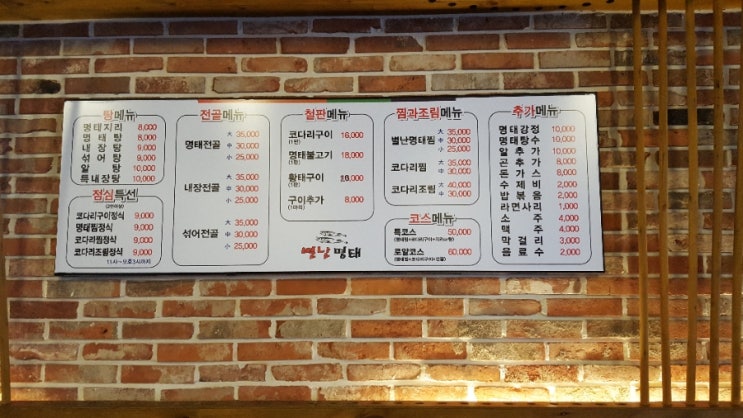 탕메뉴
명태지리 8,000
명태탕 8,000
내장탕 9,000
섞어탕 9,000
알탕 10,000
특내장탕 10,000
점심특선
코다리구이정식 9,000
명태찜정식 9,000
코다리찜정식 9,000
코다리조림정식 9,000
전골메뉴
명태전골 大 35,000
中 30,000
小 25,000
내장전골 大 35,000
中 30,000
小 25,000
섞어전골 大 35,000
中 30,000
小 25,000
철판메뉴
코다리구이 16,000
명태불고기 18,000
황태구이
구이추가 8,000
별난명태
찜과조림메뉴
별난명태찜 大 35,000
中 30,000
小 25,000
코다리찜 大 35,000
中 30,000
코다리조림 大 40,000
中 30,000
코스메뉴
특코스 50,000
로얄코스 60,000
추가메뉴
명태강정 10,000
명태탕수 10,000
알추가 10,000
곤추가 8,000
돈가스 8,000
수제비 2,000
밥볶음 2,000
라면사리 1,000
소주 4,000
맥주 4,000
막걸리 3,000
음료수 2,000